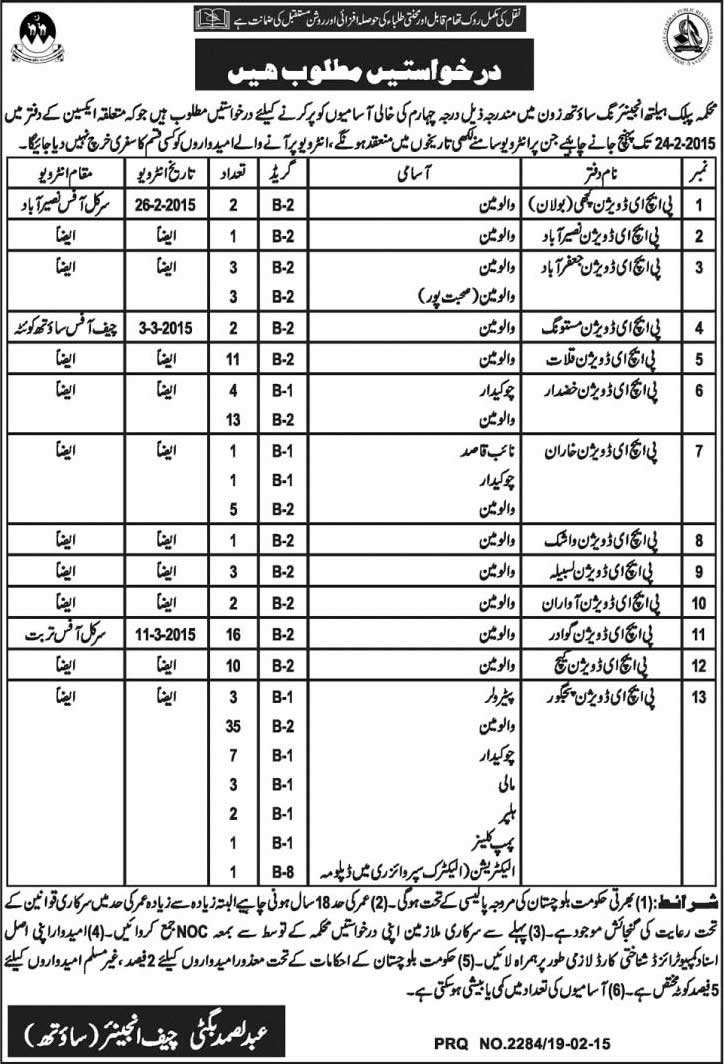 نقل کی مکمل روک تھام قابل اور محنتی طلباء کی حوصلہ افزائی اور روشن مستقبل کی ضمانت ہے
درخواستیں مطلوب ہیں
محکمہ پبلک ہیلتھ انجینئرنگ ساؤتھ زون میں مندرجہ ذیل درجہ چہارم کی خالی آسامیوں کو پر کرنے کیلئے درخواستیں مطلوب ہیں جو کہ متعلقہ ایکسین کے دفتر میں
24-2-2015 تک پہنچ جانے چاہیئے جن پر انٹرویو سامنے لکھی تاریخوں میں منعقد ہونگے، انٹرویو پر آنے والے امیدواروں کو کسی قسم کا سفری خرچ نہیں دیا جائیگا۔
نمبر نام دفتر آسامی گریڈ تعداد تاریخ انٹرویو مقام انٹرویو
1 پی ایچ ای ڈویژن کچھی (بولان) والومین B-2 2 26-2-2015 سرکل آفس نصیر آباد
2 پی ایچ ای ڈویژن نصیر آباد والومین B-2 1 ایضاً ایضاً
3 پی ایچ ای ڈویژن جعفر آباد والومین B-2 3 ایضاً ایضاً
والومین (صحبت پور) B-2 3
4 پی ایچ ای ڈویژن مستونگ والومین B-2 2 3-3-2015 چیف آفس ساؤتھ کوئٹہ
5 پی ایچ ای ڈویژن قلات والومین B-2 11 ایضاً ایضاً
6 پی ایچ ای ڈویژن خضدار چوکیدار B-1 4 ایضاً ایضاً
والومین B-2 13
7 پی ایچ ای ڈویژن خاران نائب قاصد B-1 1 ایضاً ایضاً
چوکیدار B-1 1
والومین B-2 5
8 پی ایچ ای ڈویژن واشک والومین B-2 1 ایضاً ایضاً
9 پی ایچ ای ڈویژن لسبیلہ والومین B-2 3 ایضاً ایضاً
10 پی ایچ ای ڈویژن آواران والومین B-2 2 ایضاً ایضاً
11 پی ایچ ای ڈویژن گوادر والومین B-2 16 11-3-2015 سرکل آفس تربت
12 پی ایچ ای ڈویژن کیچ والومین B-2 10 ایضاً ایضاً
13 پی ایچ ای ڈویژن پنجگور پیٹرولر B-1 3 ایضاً ایضاً
والومین B-2 35
چوکیدار B-1 7
مالی B-1 3
ہلپر B-1 2
پمپ کلینر B-1 1
الیکٹریشن (الیکٹرک سپروائزری میں ڈپلومہ B-8 1
شرائط: (1) بھرتی حکومت بلوچستان کی مروجہ پالیسی کے تحت ہوگی۔ (2) عمر کی حد 18 سال ہونی چاہیے البتہ زیادہ سے زیادہ عمر کی حد میں سرکاری قوانین کے
تحت رعایت کی گنجائش موجود ہے۔ (3) پہلے سے سرکاری ملازمین اپنی درخواستیں محکمہ کے توسط سے بمعہ NOC جمع کروائیں۔ (4) امیدوار اپنی اصل
اسناد کمپیوٹرائزڈ شناختی کارڈ لازمی طور پر ہمراہ لائیں۔ (5) حکومت بلوچستان کے احکامات کے تحت معذور امیدواروں کیلئے 2 فیصد، غیر مسلم امیدواروں کیلئے
5 فیصد کوٹہ مختص ہے۔ (6) آسامیوں کی تعداد میں کمی یا بیشی ہو سکتی ہے۔
عبدالصمد بگٹی چیف انجینئر (ساؤتھ)
PRQ NO.2284/19-02-15